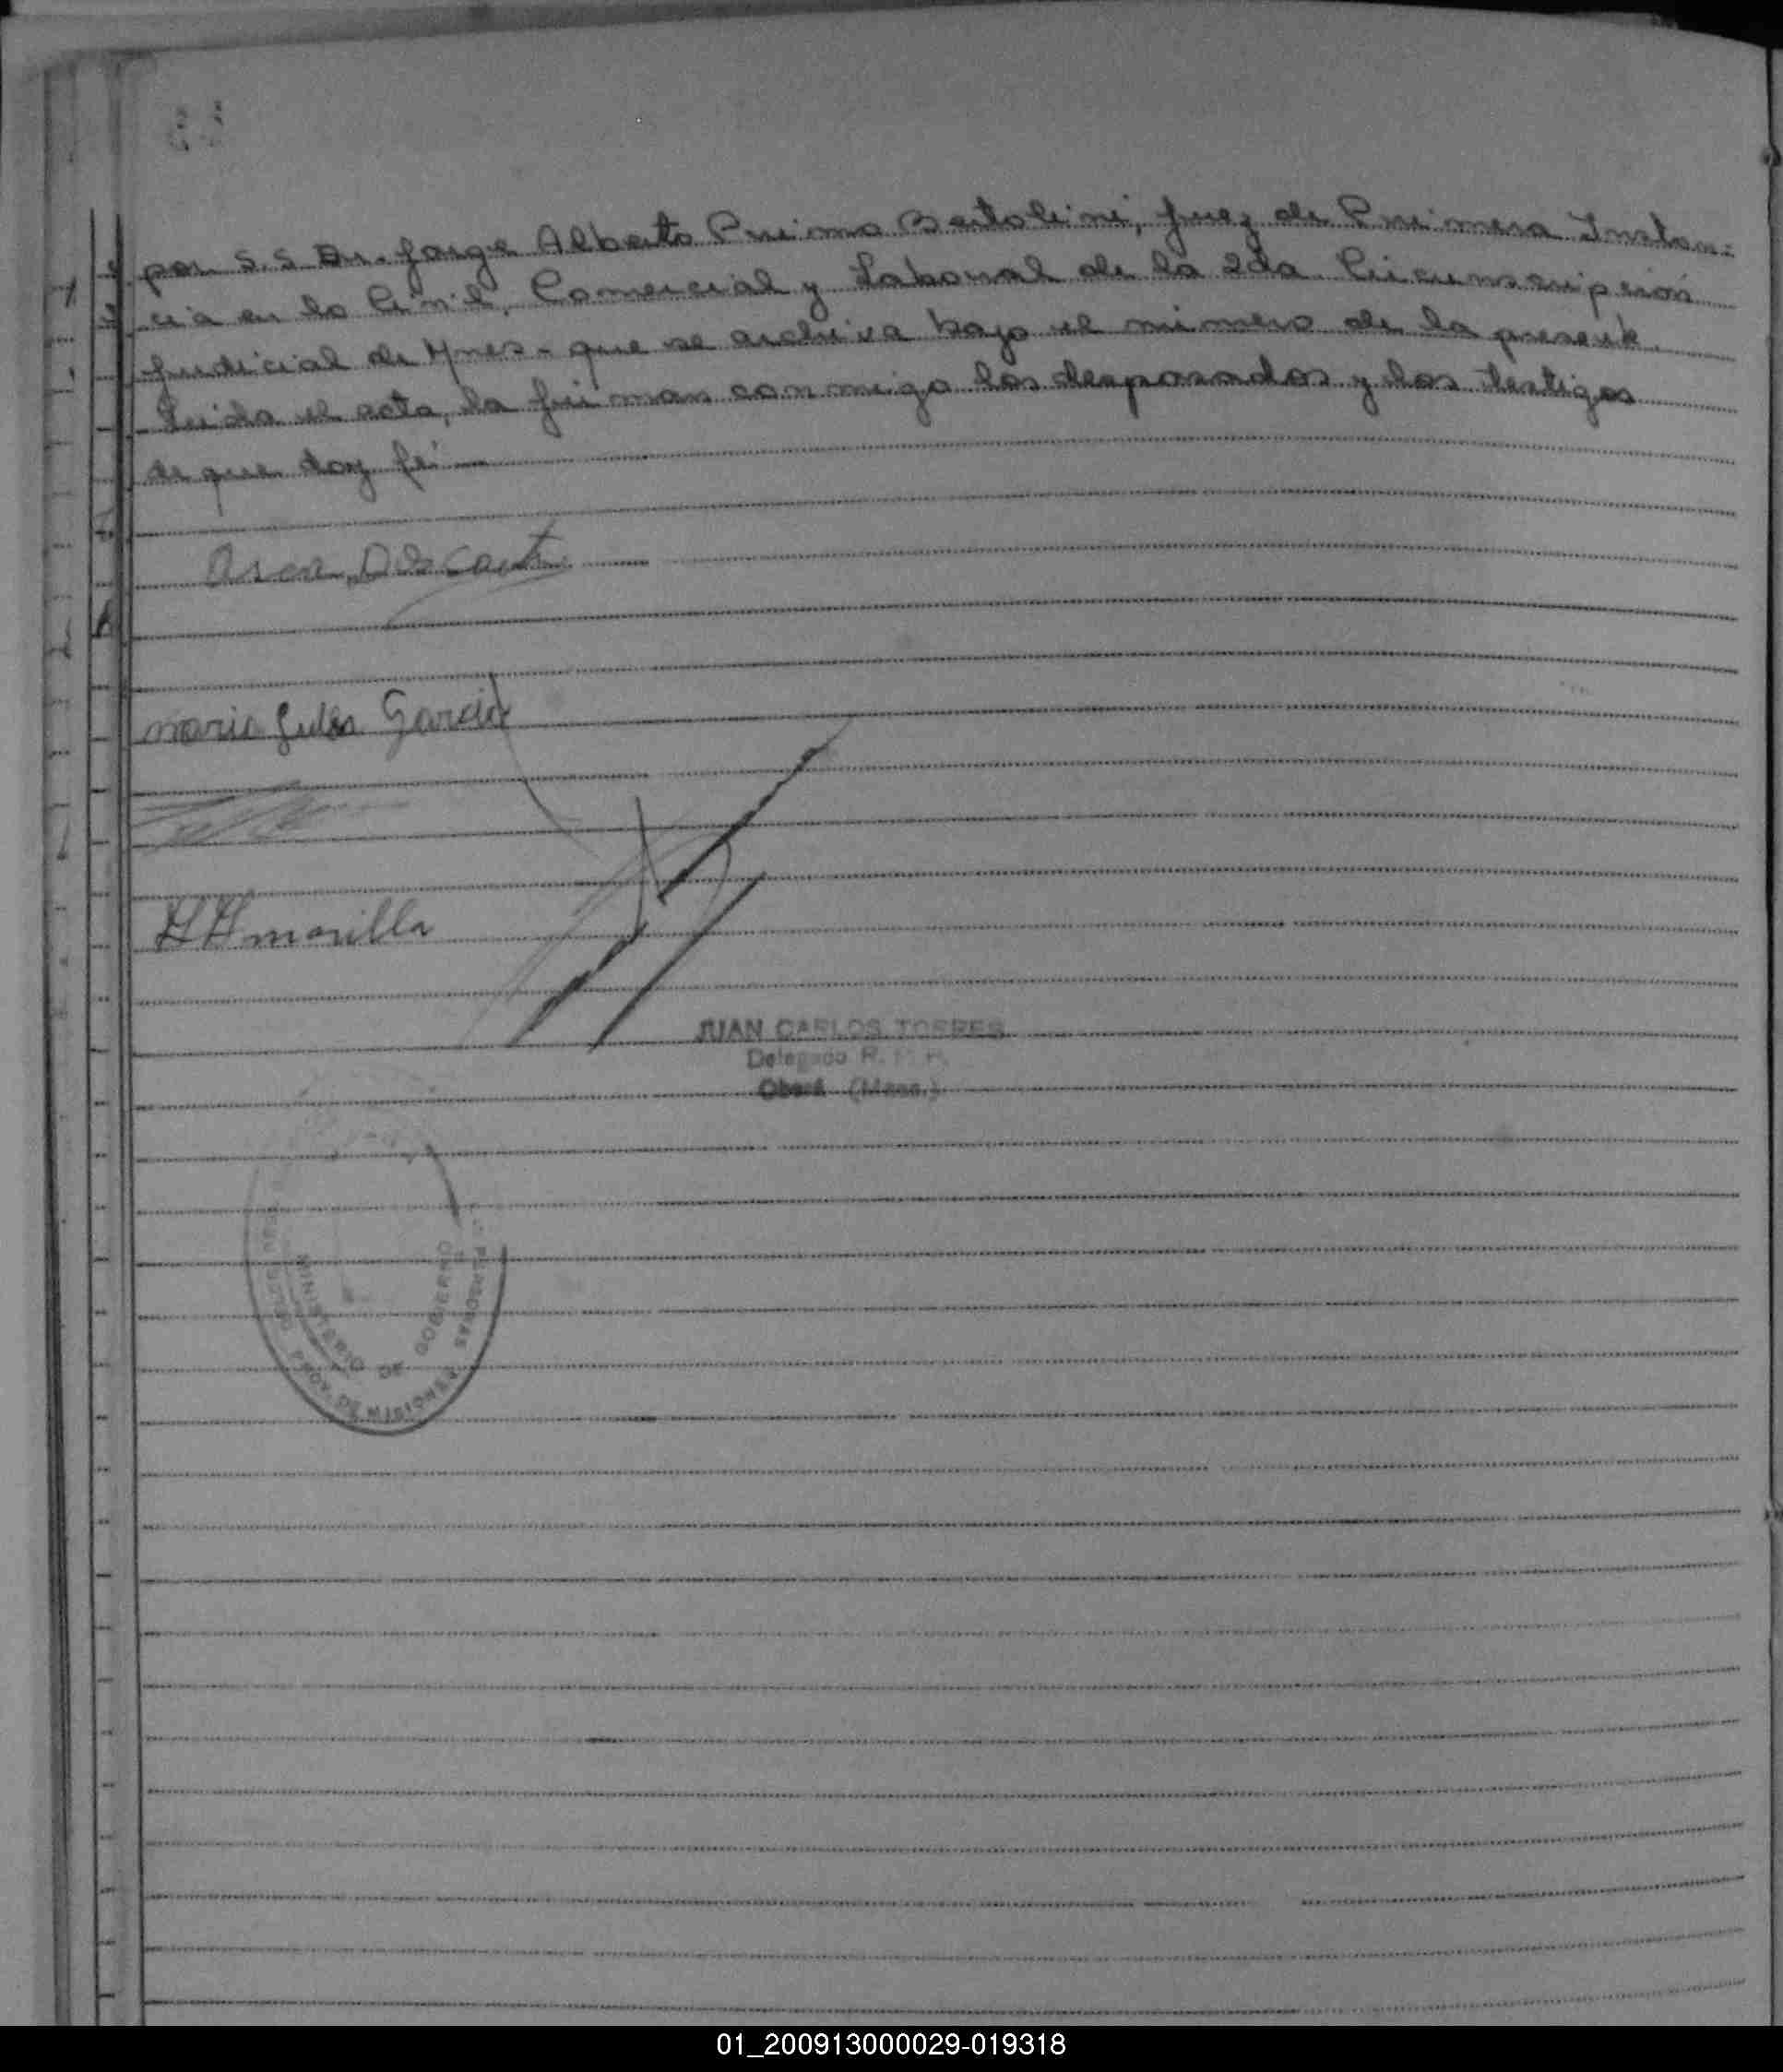 por S.S Dr. Jorge Alberto Primo Bertolini, Juez de Primera Instan=
cia en lo Civil, Comercial y Laboral de la 2da Circunscripción
Judicial de Mnes - que se archiva bajo el número de la presente.
Leída el acta, la firman conmigo los desposados y los testigos
de que doy fé —
maria Julia Garcia
JUAN CARLOS TORRES
Delegado R. P.
Oberá (Mnes.)
MINISTERIO DE GOBIERNO
PERSONAS
01_200913000029-019318